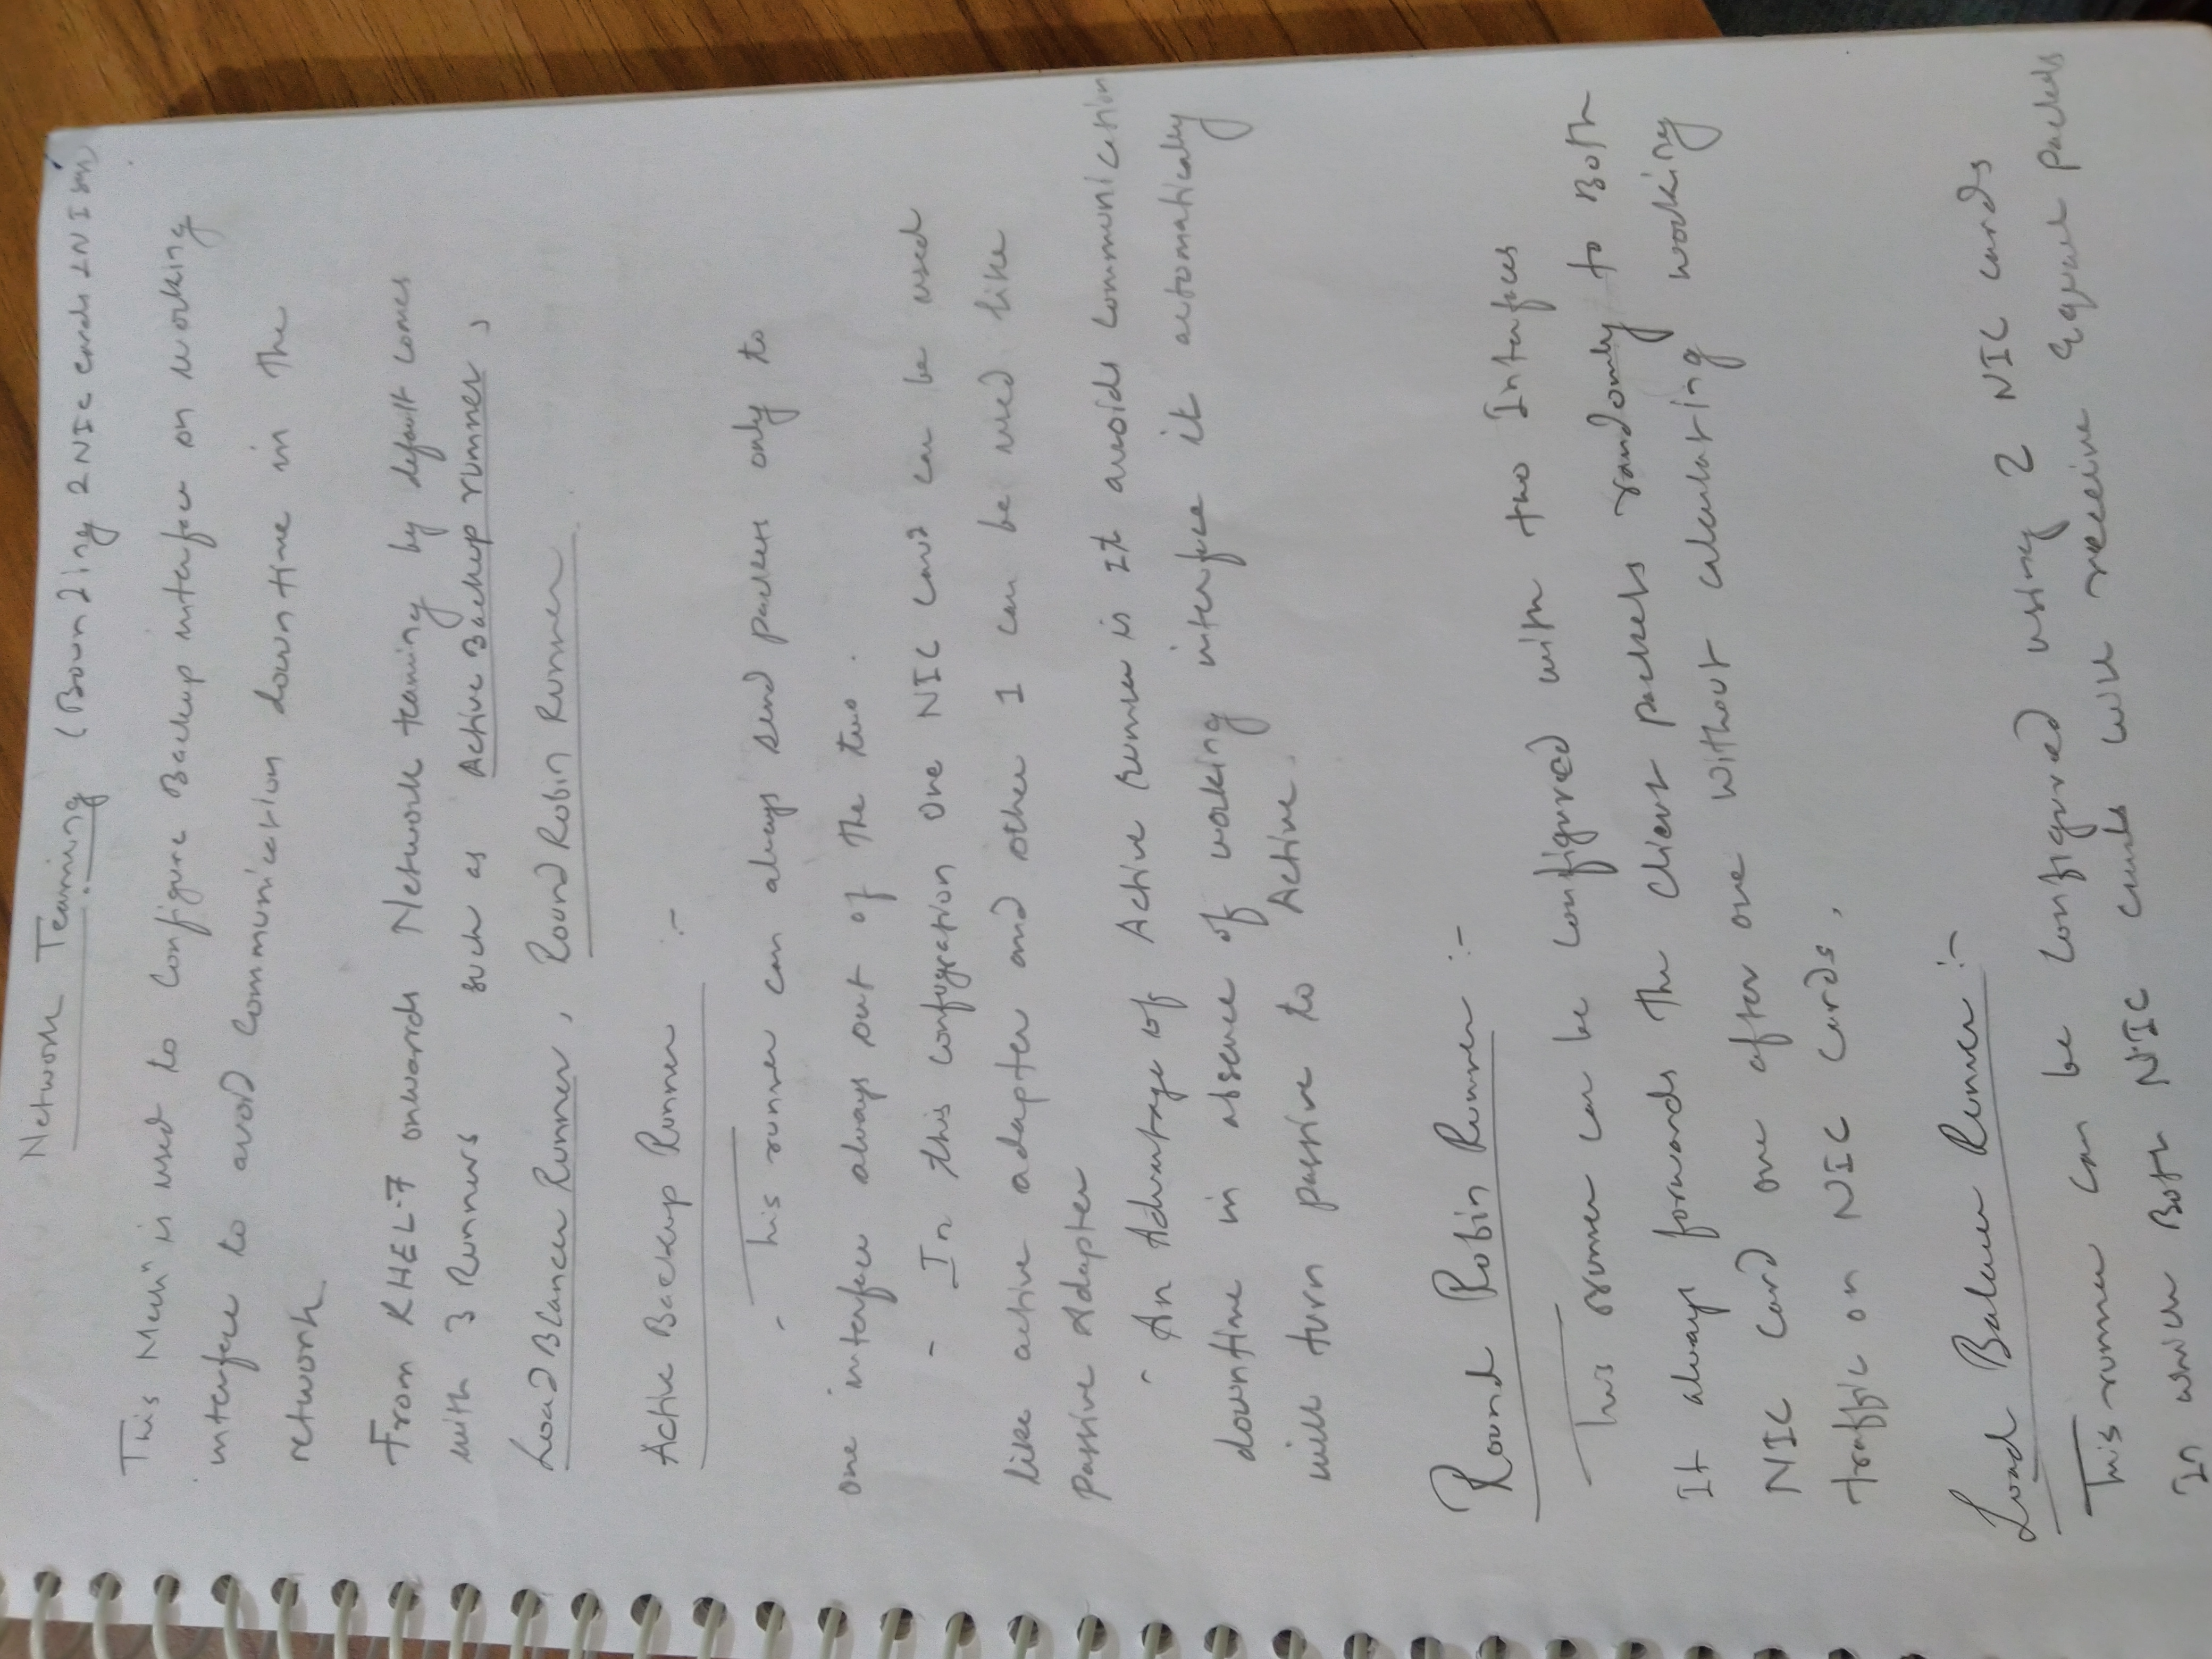 Network Teaming (Bounding 2 NIC cards
This Mechn is used to Configure Backup interface on working
interface to avoid Communication downtime in the
network
From RHEL-7 onwards Network teaming by default comes
with 3 Runners such as Active Backup runner,
Load Blancer Runner, Round Robin Runner
Active Backup Runner :-
- This runner can always send packets only to
one interface always out of the two.
- In this confugration One NIC card can be used
like active adapter and other 1 can be used like
passive Adapter
- An Advantage of Active runner is It avoids communication
downtime in absence of working interface it automatically
will turn passive to Active.
Round Robin Runner :-
This runner can be configured with two Interfaces
It always forwards the client packets randomly to Both
NIC card one after one without calculating working
traffic on NIC cards.
Load Balancer Runner :-
This runner can be configured using 2 NIC cards
In which Both NIC cards will receive Equal packets